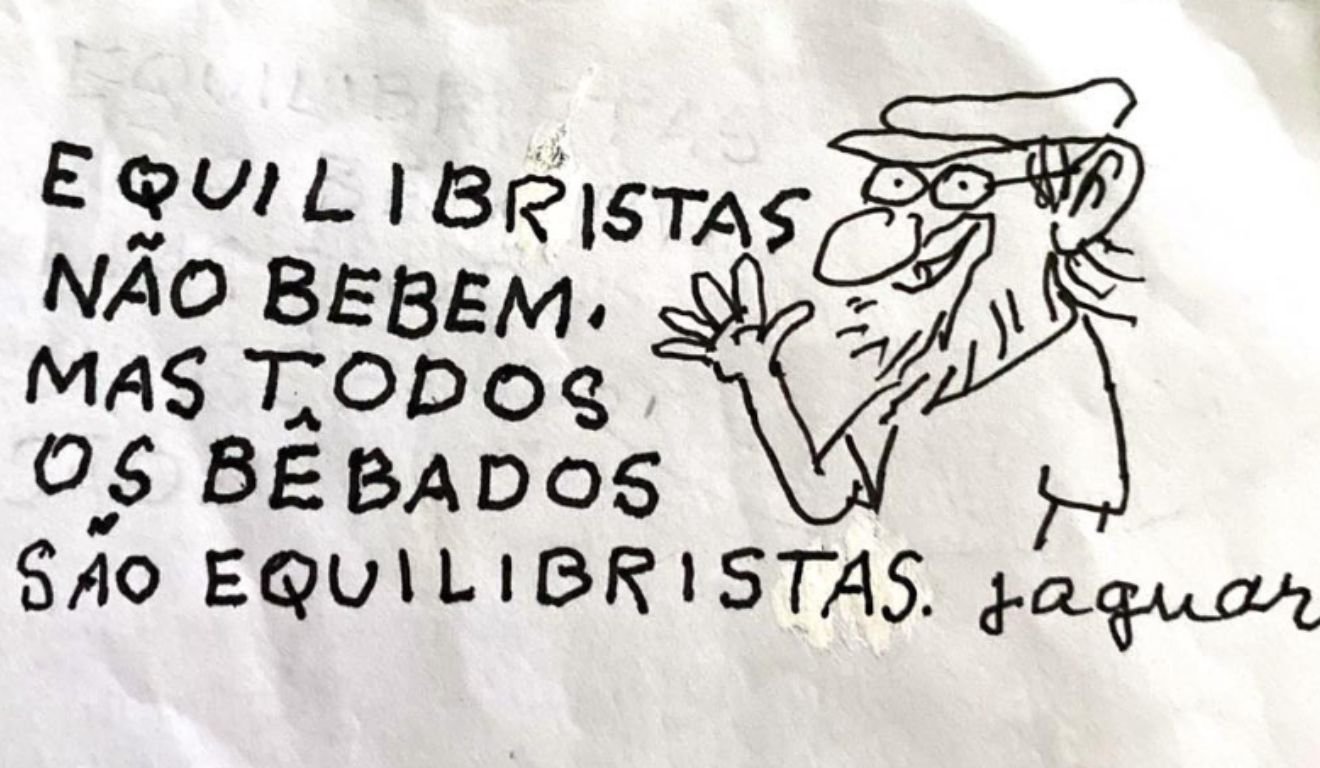 EQUILIBRISTAS
NÃO BEBEM.
MAS TODOS
OS BÊBADOS
SÃO EQUILIBRISTAS.
jaguar